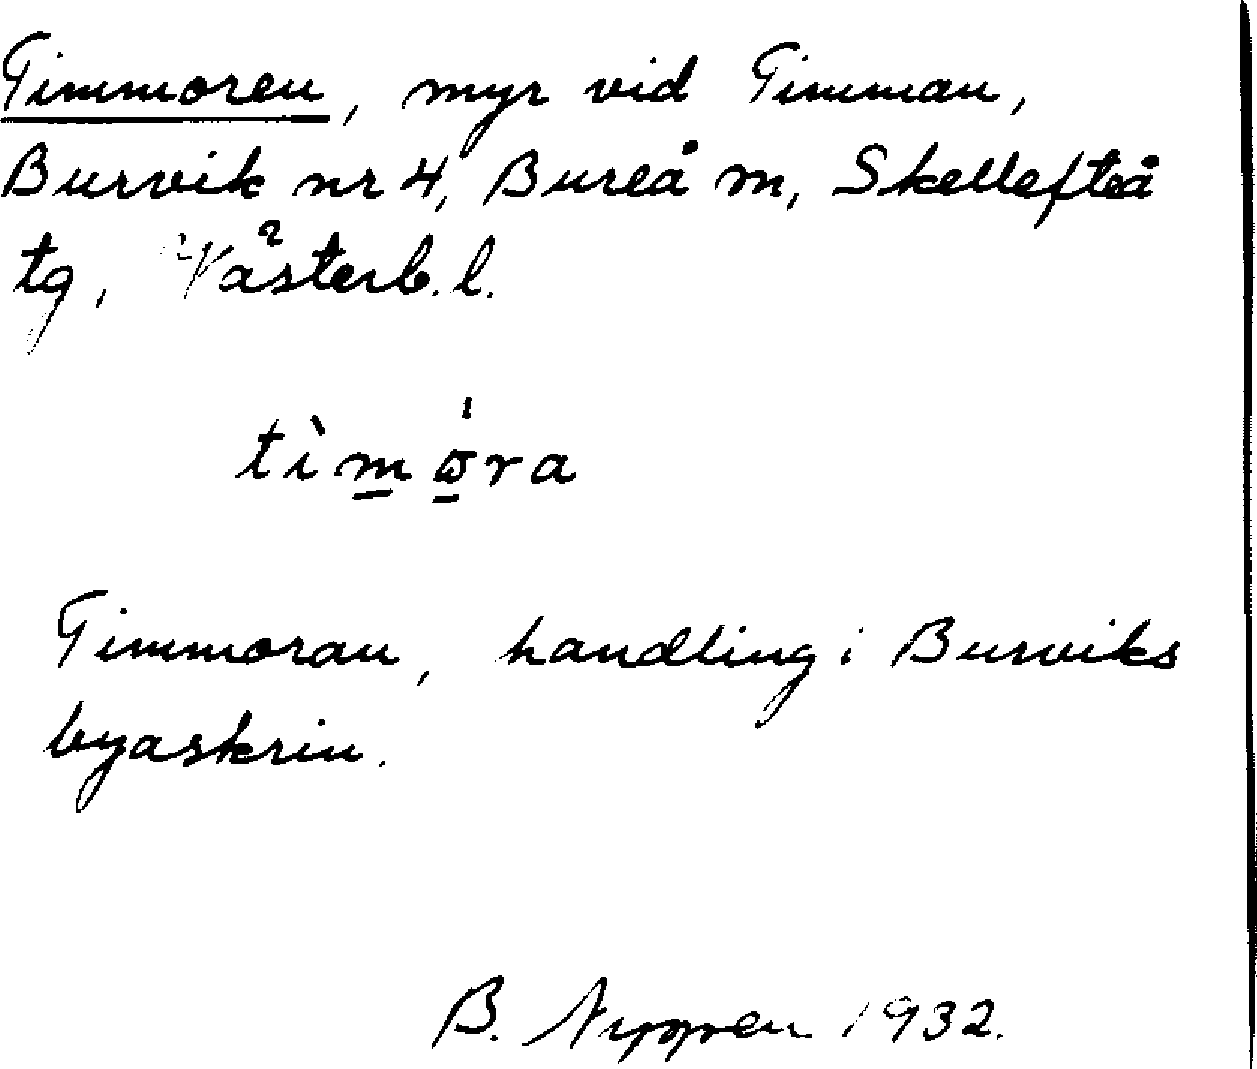 Timmoren, myr vid Timman,
Burvik nr 4, Bureå m, Skellefteå
tg, Västerb. l.
tìmøra
Timmoran, handling i Burviks
byaskrin.
B. Nygren 1932.